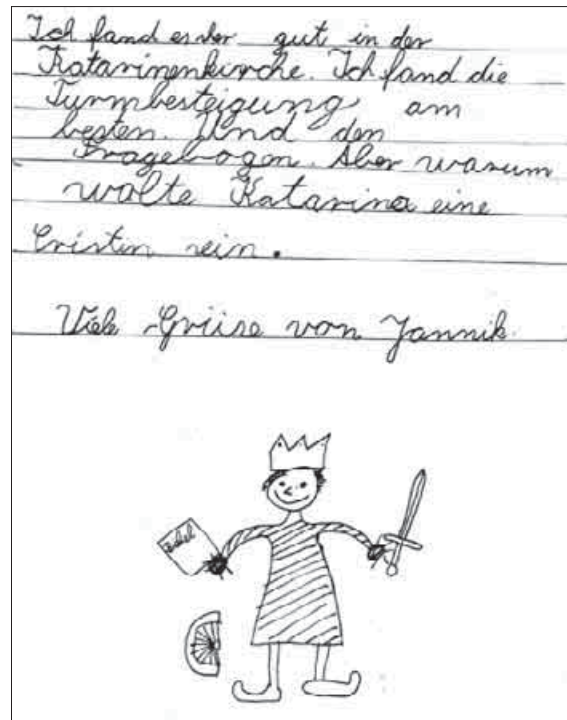 Ich fand es ser gut in der
Katarinenkirche. Ich fand die
Turmbesteigung am
besten. Und den
Fragebogen. Aber warum
wolte Katarina eine
Cristin sein.
Viele Grüise von Jannik